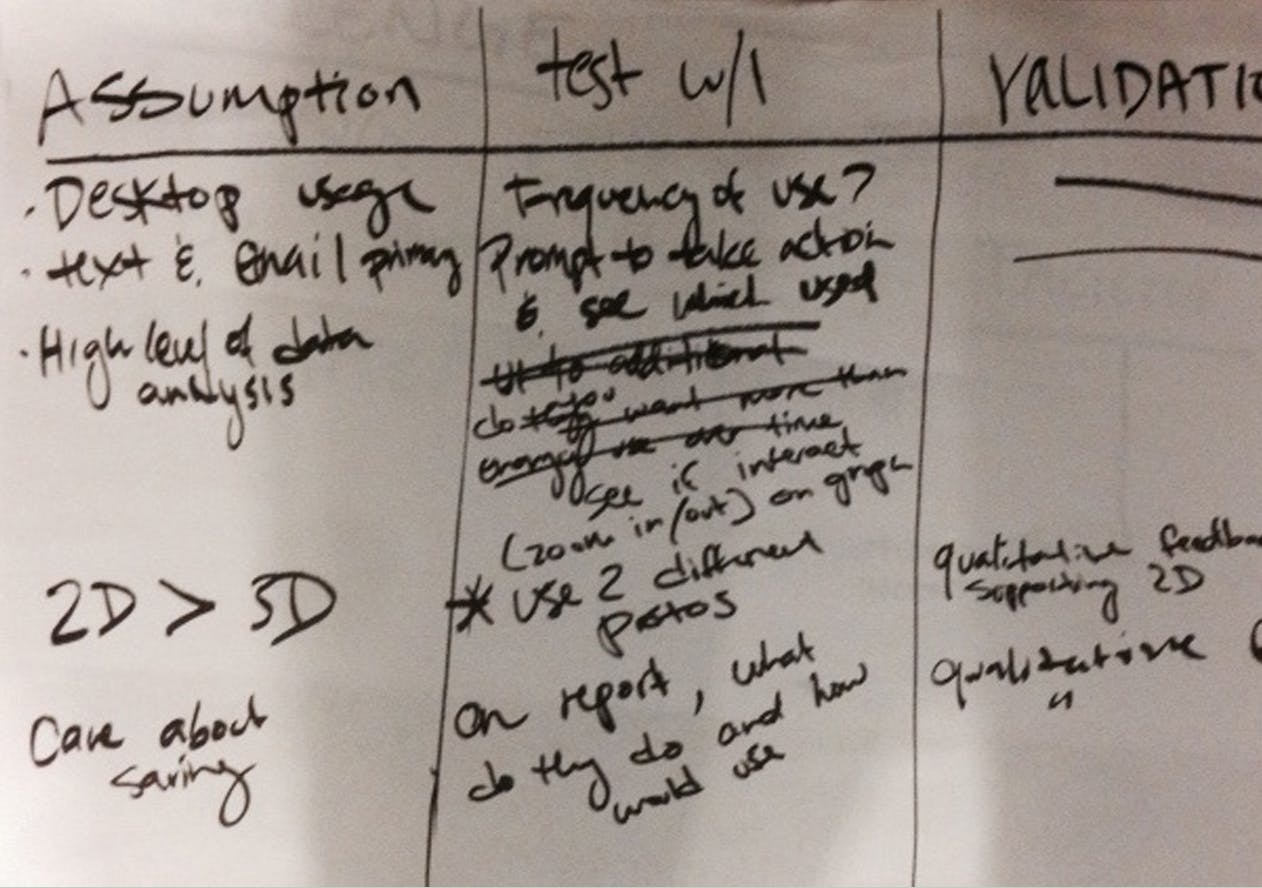 Assumption
test w/
VALIDATIO
· Desktop usage
Frequency of use?
· text & Email primary
Prompt to take action
& see which used
· High level of data
analysis
additional
do you want more than
energy use over time
see if interact
(zoom in/out) on graph
2D > 3D
* Use 2 different
qualitative feedba
supporting 2D
Care about
saving
On report, what
do they do and how
would use
qualitative
"